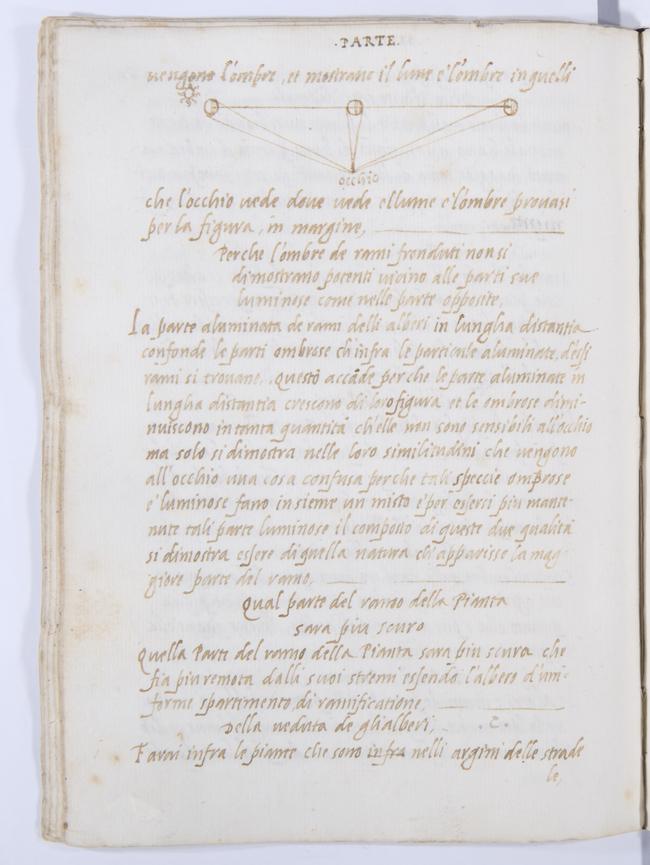 ·PARTE·
uengono l'ombre, et mostrano il lume e l'ombre in quelli
occhio
che l'occhio uede doue uede el lume e l'ombre prouasi
per la figura, in margine,
Perche l'ombre de rami fronduti non si
dimostrano potenti uicino alle parti sue
luminose come nelle parte opposite,
La parte aluminata de rami delli alberi in lungha distantia
confonde le parti ombrose ch'infra le particule aluminate, d'essi
rami si trouano, Questo accade perche le parte aluminate in
lungha distantia crescono di loro figura et le ombrose dimi-
nuiscono in tanta quantità ch'elle non sono sensibili all'occhio
ma solo si dimostra nelle loro similitudini che uengono
all'occhio una cosa confusa perche tali speccie ombrose
e luminose fano insieme un misto e per esserci piu mante-
nute tali parte luminose il composto di queste due qualità
si dimostra essere di quella natura ch'apparisse la mag-
giore parte del ramo,
Qual parte del ramo della Pianta
sara piu scuro
Quella Parte del ramo della Pianta sara piu scura che
fia piu remota dalli suoi stremi essendo l'albero d'uni-
forme spartimento di ramificatione,
Della ueduta de gli alberi,
Farai infra le piante che sono infra nelli argini delle strade
le,